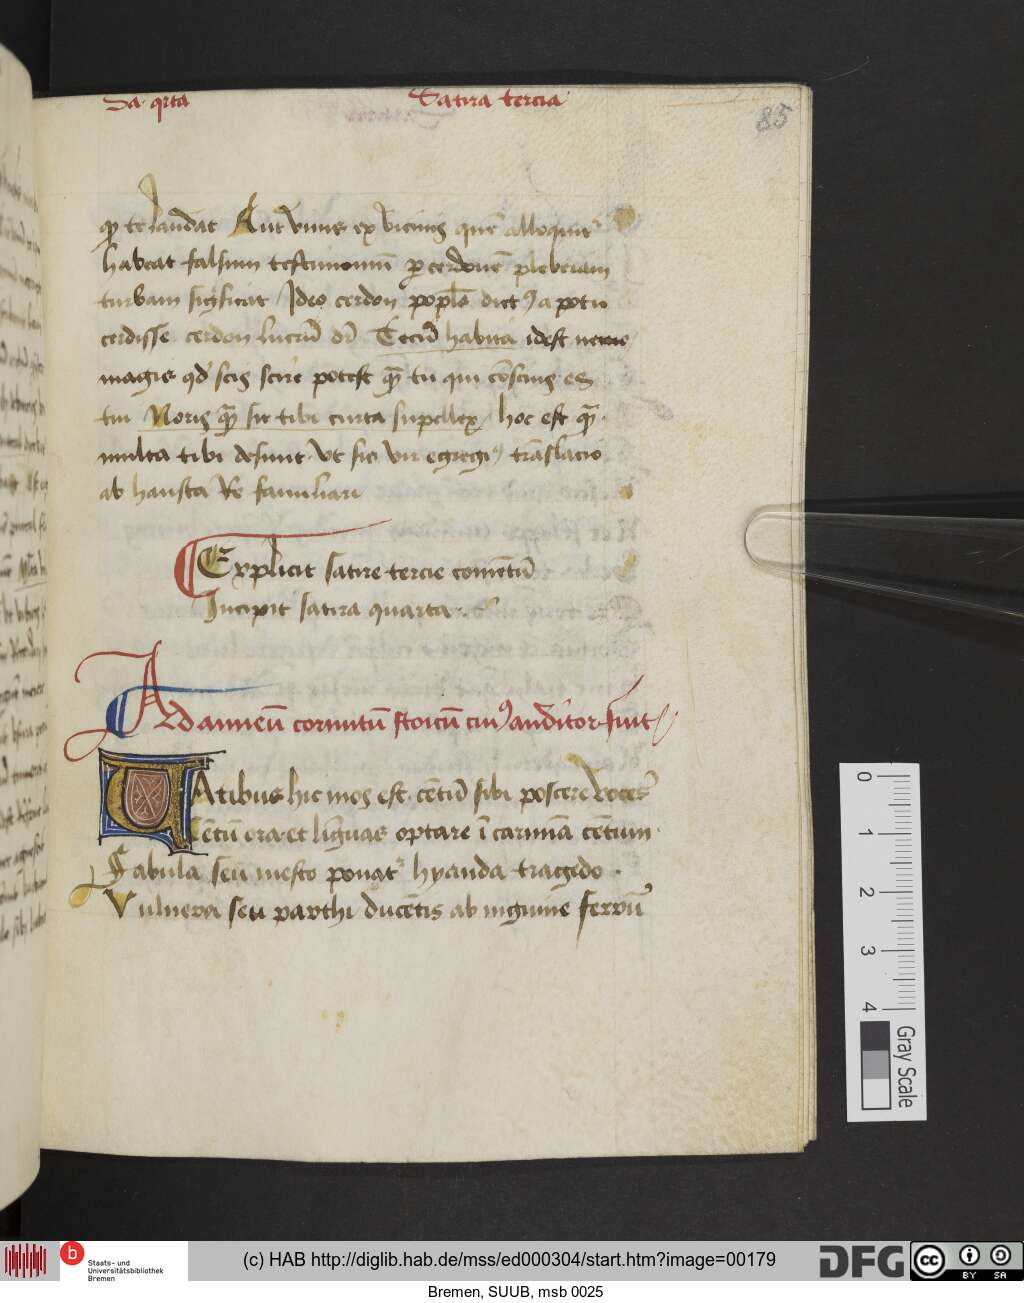 Sa. qrta Satira tercia
85
qꝫ te laudat Aut vnus ex vicinis que᷒ alloquit᷑
habeat falsum testimoniū ꝑ cerdonē plebeiam
turbam sigficat / Ideo cerdon popl̄o dictꝰ a potu
cerdisse cerdon lucrū dr̄ Tecū habita idest nemo
magis qd' scis scire potest qm̄ tu qui cōscius es
tui Noris qm̄ sit tibi curta supellex / hoc est qm̄
multa tibi desunt. vt sic vir egregiꝰ trāslacio
ab hausta Re familiari
Explicit satire tercie comētū
Incipit satira quarta.
Ad anneū cornutū stoicū cuiꝰ auditor fuit
VAtibus hic mos est. cētū sibi poscere voces
Cētū ora et linguas optare ī carmīa cētum.
Fabula seu mesto ponat᷑ hyanda tragedo.
Vulnera seu parthi ducētis ab inguine ferrū
0 1 2 3 4
Gray Scale
b
Staats- und
Universitätsbibliothek
Bremen
(c) HAB http://diglib.hab.de/mss/ed000304/start.htm?image=00179
DFG
cc BY SA
Bremen, SUUB, msb 0025